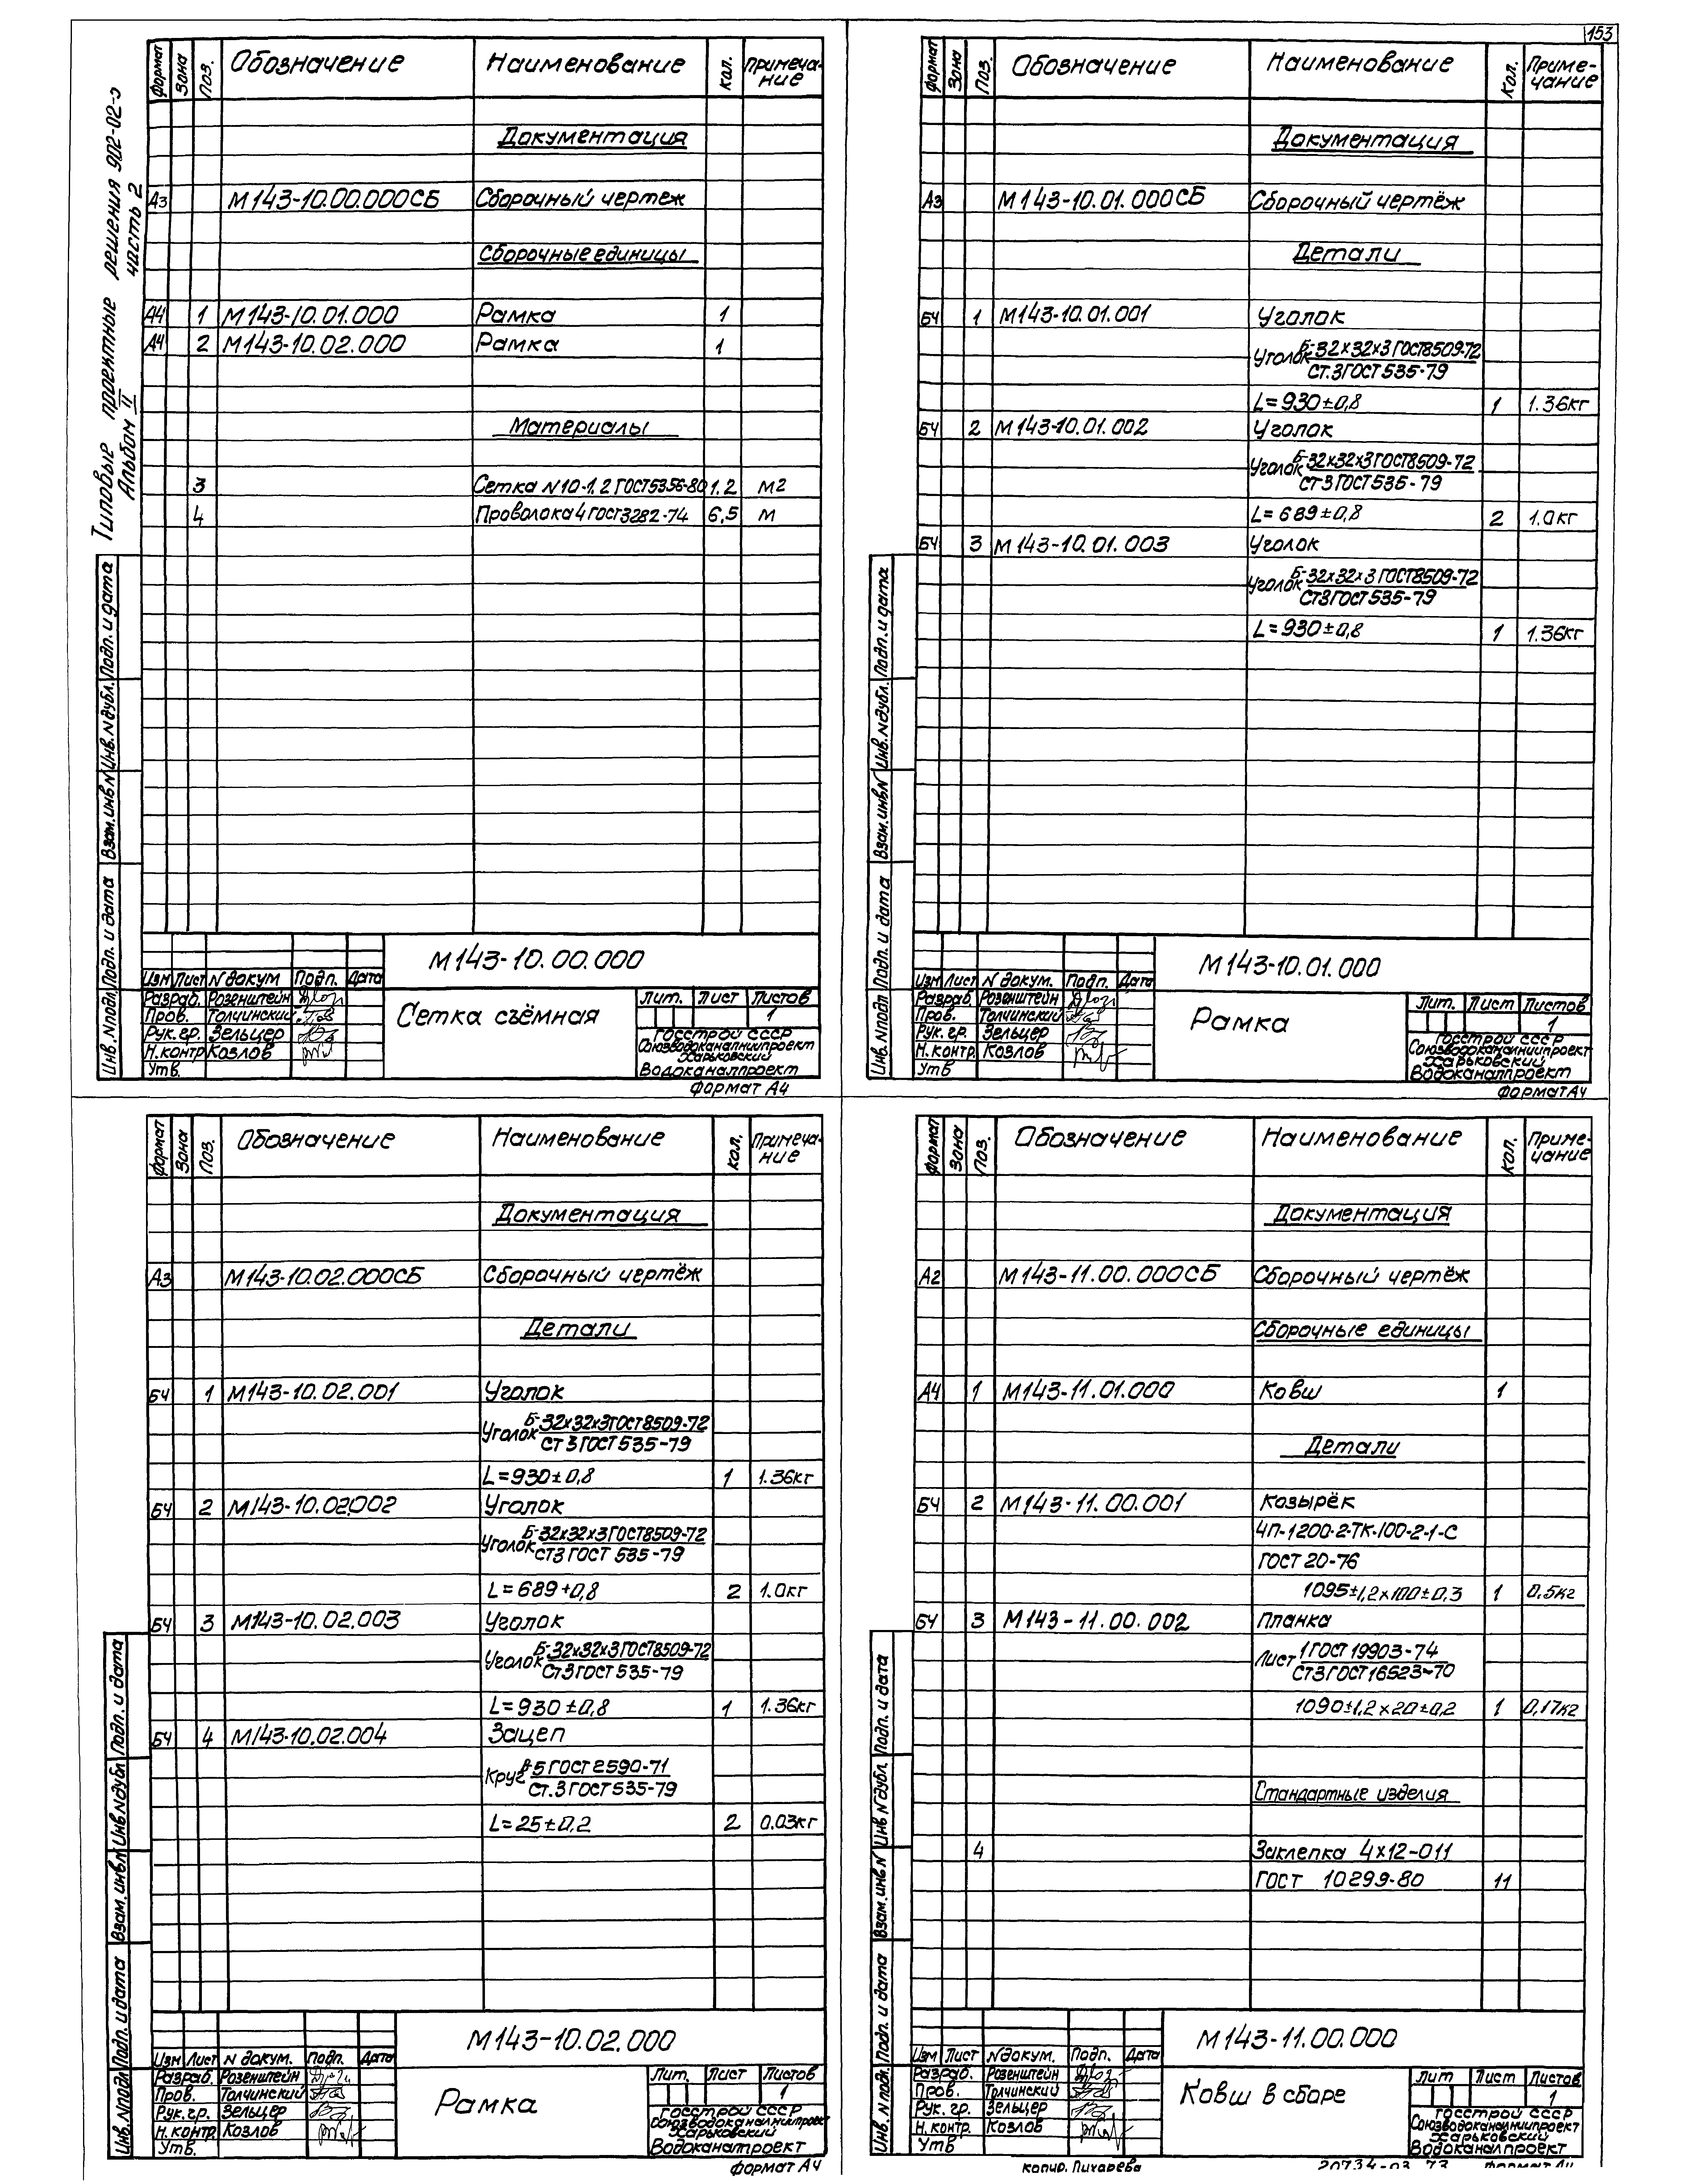 153
Типовые проектные решения 902-02-
Альбом II часть 2
Формат Зона Поз. Обозначение Наименование Кол. Примеча-ние
Документация
А3 М143-10.00.000СБ Сборочный чертеж
Сборочные единицы
А4 1 М143-10.01.000 Рамка 1
А4 2 М143-10.02.000 Рамка 1
Материалы
3 Сетка N10-1.2 ГОСТ5356-80 1,2 м2
4 Проволока 4 ГОСТ3282-74 6,5 м
Инв. N подл. Подп. и дата Взам. инв. N Инв. N дубл. Подп. и дата
М143-10.00.000
Изм Лист N докум Подп. Дата
Разраб. Розенштейн
Пров. Толчинский
Рук. гр. Зельцер
Н.контр Козлов
Утв.
Сетка съёмная
Лит. Лист Листов
1
Госстрой СССР
Союзводоканалниипроект
Харьковский
Водоканалпроект
Формат А4
Формат Зона Поз. Обозначение Наименование Кол. Приме-чание
Документация
А3 М143-10.01.000СБ Сборочный чертёж
Детали
БЧ 1 М143-10.01.001 Уголок
Уголок Б-32х32х3 ГОСТ8509-72
Ст.3 ГОСТ 535-79
L=930±0,8 1 1.36кг
БЧ 2 М143-10.01.002 Уголок
Уголок Б-32х32х3 ГОСТ8509-72
Ст3 ГОСТ 535-79
L=689±0,8 2 1.0кг
БЧ 3 М143-10.01.003 Уголок
Уголок Б-32х32х3 ГОСТ8509-72
Ст3 ГОСТ 535-79
L=930±0,8 1 1.36кг
Инв. N подл Подп. и дата Взам. инв. N Инв. N дубл. Подп. и дата
М143-10.01.000
Изм Лист N докум. Подп. Дата
Разраб Розенштейн
Пров. Толчинский
Рук. гр. Зельцер
Н.контр. Козлов
Утв
Рамка
Лит. Лист Листов
1
Госстрой СССР
Союзводоканалниипроект
Харьковский
Водоканалпроект
Формат А4
Формат Зона Поз. Обозначение Наименование Кол. Примеча-ние
Документация
А3 М143-10.02.000СБ Сборочный чертёж
Детали
БЧ 1 М143-10.02.001 Уголок
Уголок Б-32х32х3 ГОСТ8509-72
Ст 3 ГОСТ 535-79
L=930±0,8 1 1.36кг
БЧ 2 М143-10.02.002 Уголок
Уголок Б-32х32х3 ГОСТ8509-72
Ст3 ГОСТ 535-79
L=689+0,8 2 1.0кг
БЧ 3 М143-10.02.003 Уголок
Уголок Б-32х32х3 ГОСТ8509-72
Ст3 ГОСТ 535-79
L=930±0,8 1 1.36кг
БЧ 4 М143-10.02.004 Зацеп
Круг 5 ГОСТ 2590-71
Ст.3 ГОСТ 535-79
L=25±0,2 2 0.03кг
Инв. N подл Подп. и дата Взам. инв. N Инв N дубл Подп. и дата
М143-10.02.000
Изм Лист N докум. Подп. Дата
Разраб. Розенштейн
Пров. Толчинский
Рук. гр. Зельцер
Н.контр. Козлов
Утв.
Рамка
Лит. Лист Листов
1
Госстрой СССР
Союзводоканалниипроект
Харьковский
Водоканалпроект
Формат А4
Формат Зона Поз. Обозначение Наименование Кол. Приме-чание
Документация
А2 М143-11.00.000СБ Сборочный чертёж
Сборочные единицы
А4 1 М143-11.01.000 Ковш 1
Детали
БЧ 2 М143-11.00.001 Козырёк
4П-1200-2-ТК-100-2-1-С
ГОСТ 20-76
1095±1,2х100±0,3 1 0,5кг
БЧ 3 М143-11.00.002 Планка
Лист 1 ГОСТ 19903-74
Ст3 ГОСТ 16523-70
1090±1,2х20±0,2 1 0,17кг
Стандартные изделия
4 Заклепка 4х12-011
ГОСТ 10299-80 11
Инв. N подл. Подп. и дата Взам. инв N Инв N дубл. Подп. и дата
М143-11.00.000
Изм Лист N докум. Подп. Дата
Разраб. Розенштейн
Пров. Толчинский
Рук. гр. Зельцер
Н.контр. Козлов
Утв
Ковш в сборе
Лит Лист Листов
1
Госстрой СССР
Союзводоканалниипроект
Харьковский
Водоканалпроект
Копир. Пихарева 20734-03 73 Формат А4